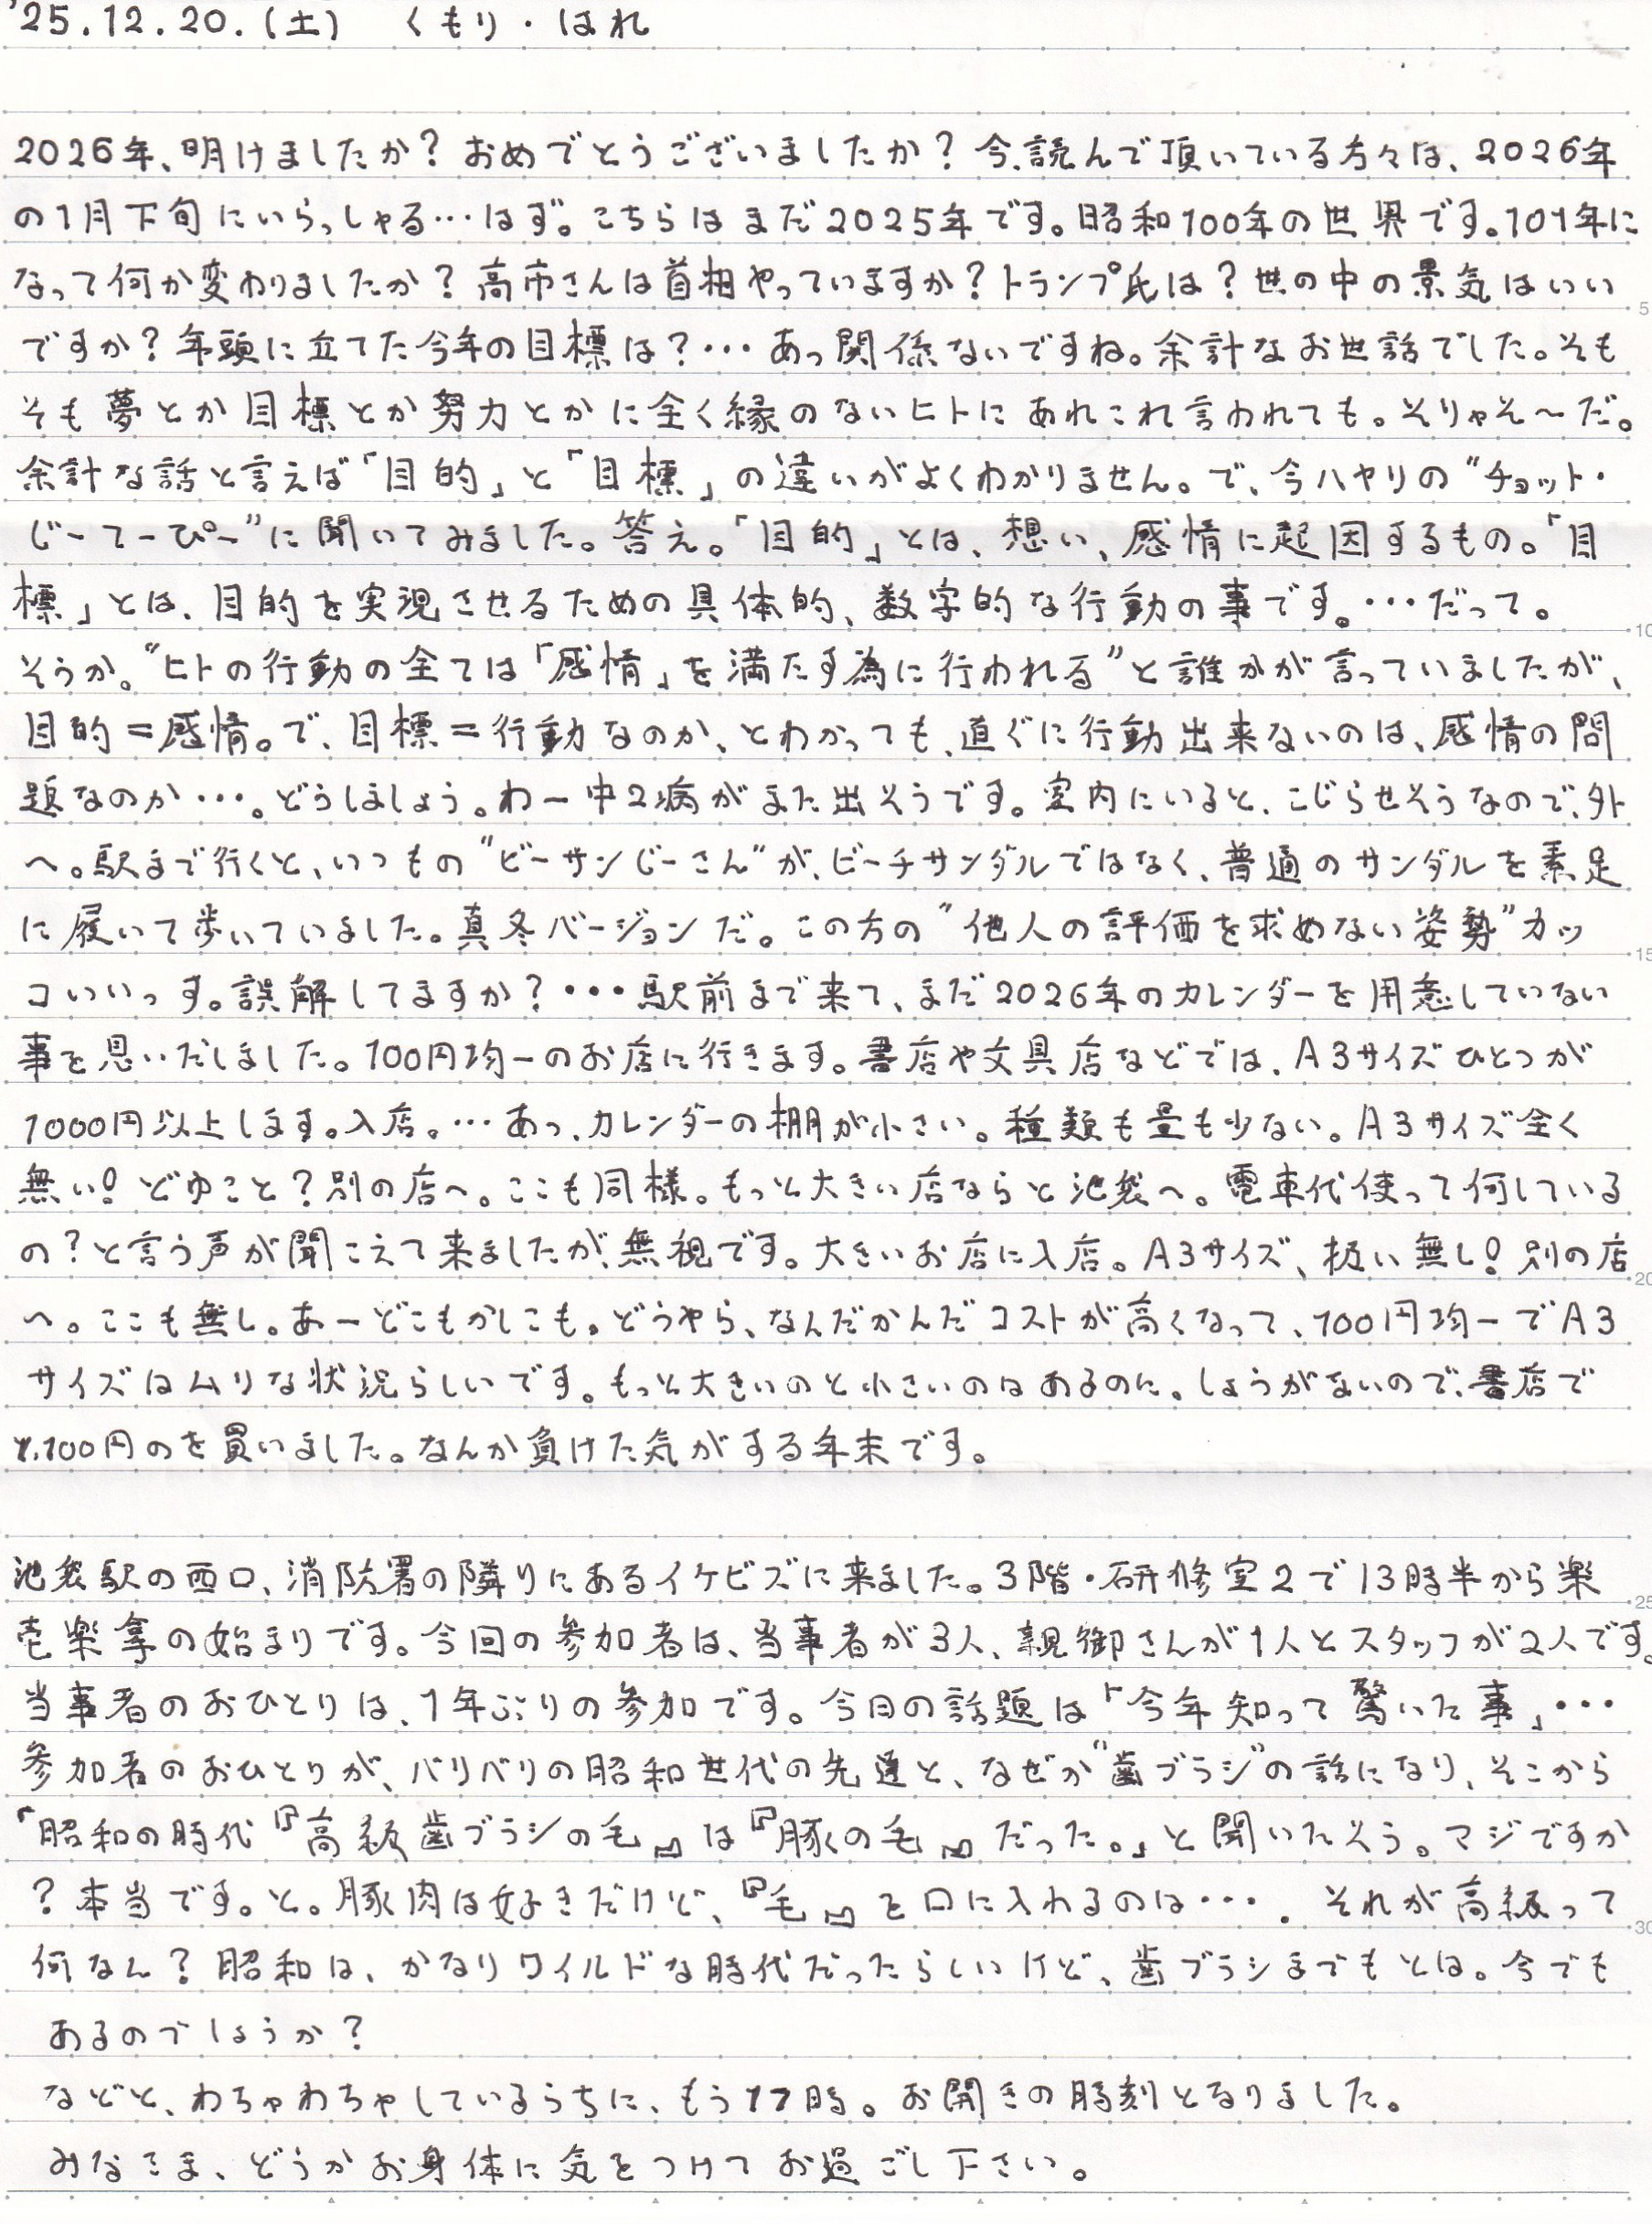 '25.12.20.(土)　くもり・はれ
2026年、明けましたか？おめでとうございましたか？今、読んで頂いている方々は、2026年
の1月下旬にいらっしゃる…はず。こちらはまだ2025年です。昭和100年の世界です。101年に
なって何か変わりましたか？高市さんは首相やっていますか？トランプ氏は？世の中の景気はいい
ですか？年頭に立てた今年の目標は？…あっ関係ないですね。余計なお世話でした。そも
そも夢とか目標とか努力とかに全く縁のないヒトにあれこれ言われても。そりゃそ〜だ。
余計な話と言えば「目的」と「目標」の違いがよくわかりません。で、今ハヤリの"チョット・
じーてーぴー"に聞いてみました。答え。「目的」とは、想い、感情に起因するもの。「目
標」とは、目的を実現させるための具体的、数字的な行動の事です。…だって。
そうか。"ヒトの行動の全ては「感情」を満たす為に行われる"と誰かが言っていましたが、
目的＝感情。で、目標＝行動なのか、とわかっても、直ぐに行動出来ないのは、感情の問
題なのか…。どうしましょう。わー中2病がまた出そうです。室内にいると、こじらせそうなので、外
へ。駅まで行くと、いつもの"ビーサンじーさん"が、ビーチサンダルではなく、普通のサンダルを素足
に履いて歩いていました。真冬バージョンだ。この方の"他人の評価を求めない姿勢"カッ
コいいっす。誤解してますか？…駅前まで来て、まだ2026年のカレンダーを用意していない
事を思いだしました。100円均一のお店に行きます。書店や文具店などでは、A3サイズひとつが
1000円以上します。入店。…あっ、カレンダーの棚が小さい。種類も量も少ない。A3サイズ全く
無い！どゆこと？別の店へ。ここも同様。もっと大きい店ならと池袋へ。電車代使って何している
の？と言う声が聞こえて来ましたが、無視です。大きいお店に入店。A3サイズ、扱い無し！別の店
へ。ここも無し。あーどこもかしこも。どうやら、なんだかんだコストが高くなって、100円均一でA3
サイズはムリな状況らしいです。もっと大きいのと小さいのはあるのに。しょうがないので、書店で
1,100円のを買いました。なんか負けた気がする年末です。
池袋駅の西口、消防署の隣りにあるイケビズに来ました。3階・研修室2で13時半から楽
壱楽拿の始まりです。今回の参加者は、当事者が3人、親御さんが1人とスタッフが2人です。
当事者のおひとりは、1年ぶりの参加です。今日の話題は「今年知って驚いた事」…
参加者のおひとりが、バリバリの昭和世代の先達と、なぜか"歯ブラシ"の話になり、そこから
「昭和の時代『高級歯ブラシの毛』は『豚の毛』だった。」と聞いたそう。マジですか
？本当です。と。豚肉は好きだけど、『毛』を口に入れるのは…。それが高級って
何なん？昭和は、かなりワイルドな時代だったらしいけど、歯ブラシまでもとは。今でも
あるのでしょうか？
などと、わちゃわちゃしているうちに、もう17時。お開きの時刻となりました。
みなさま、どうかお身体に気をつけてお過ごし下さい。
5
10
15
20
25
30